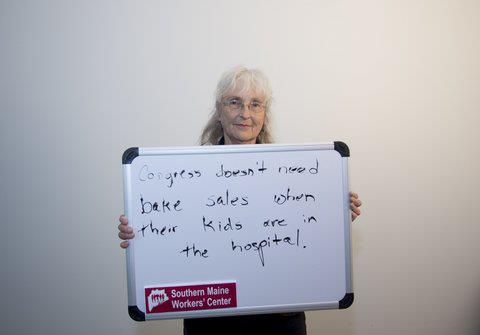 Congress doesn't need
bake sales when
their kids are in
the hospital.
Southern Maine
Workers' Center